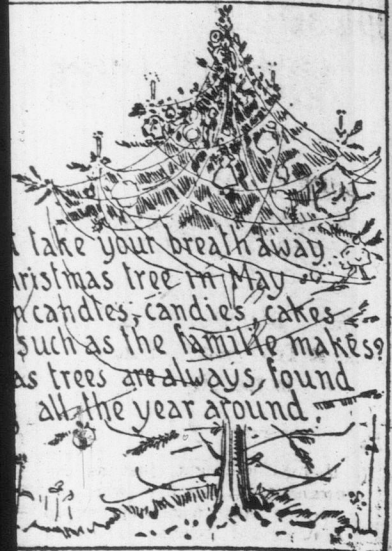 take your breath away
tree in May
candles, candies, cakes
such as the famille makes?
as trees are always found
all the year around.